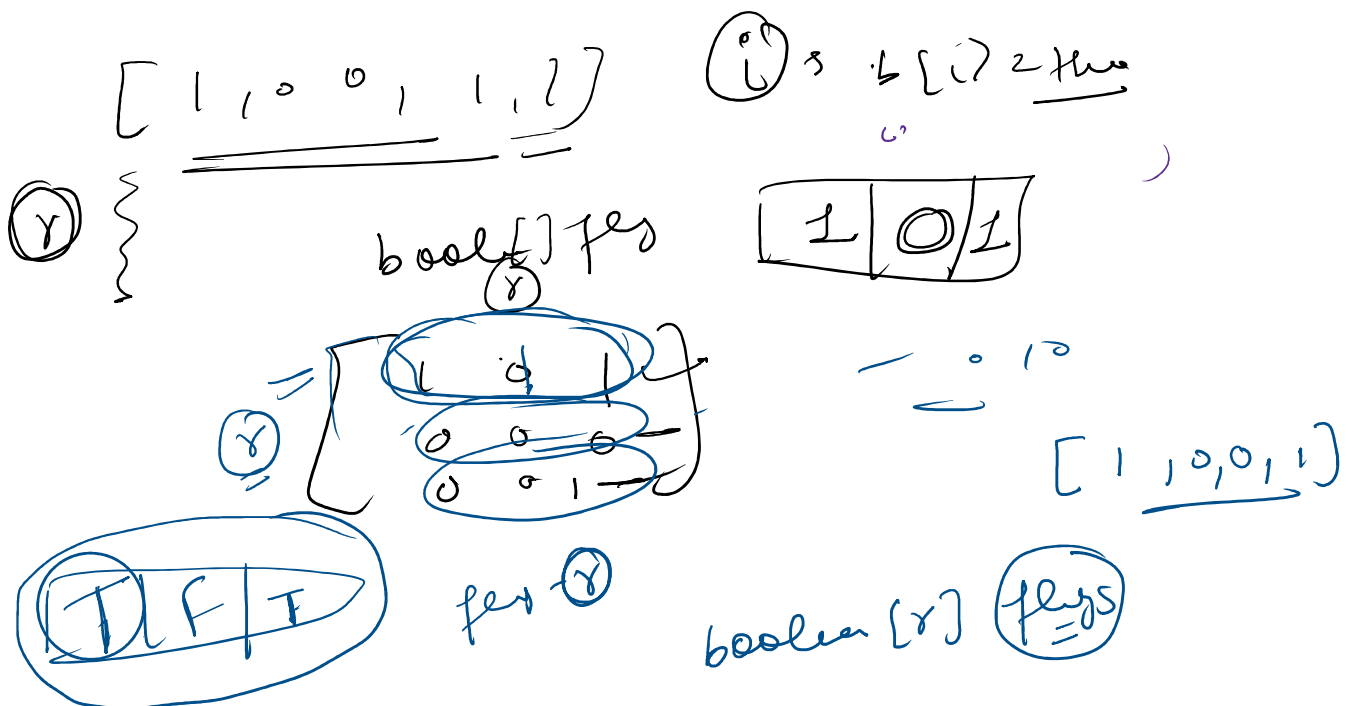 [ 1 , 0 0 , 1 , ] ]
i , b [i] = true
r
boole[] flgs
r
1 0 1
1 0 1
0 0 0
0 0 1
r
0 10
[ 1 , 0, 0, 1 ]
T F T
r
boolean [r] flags